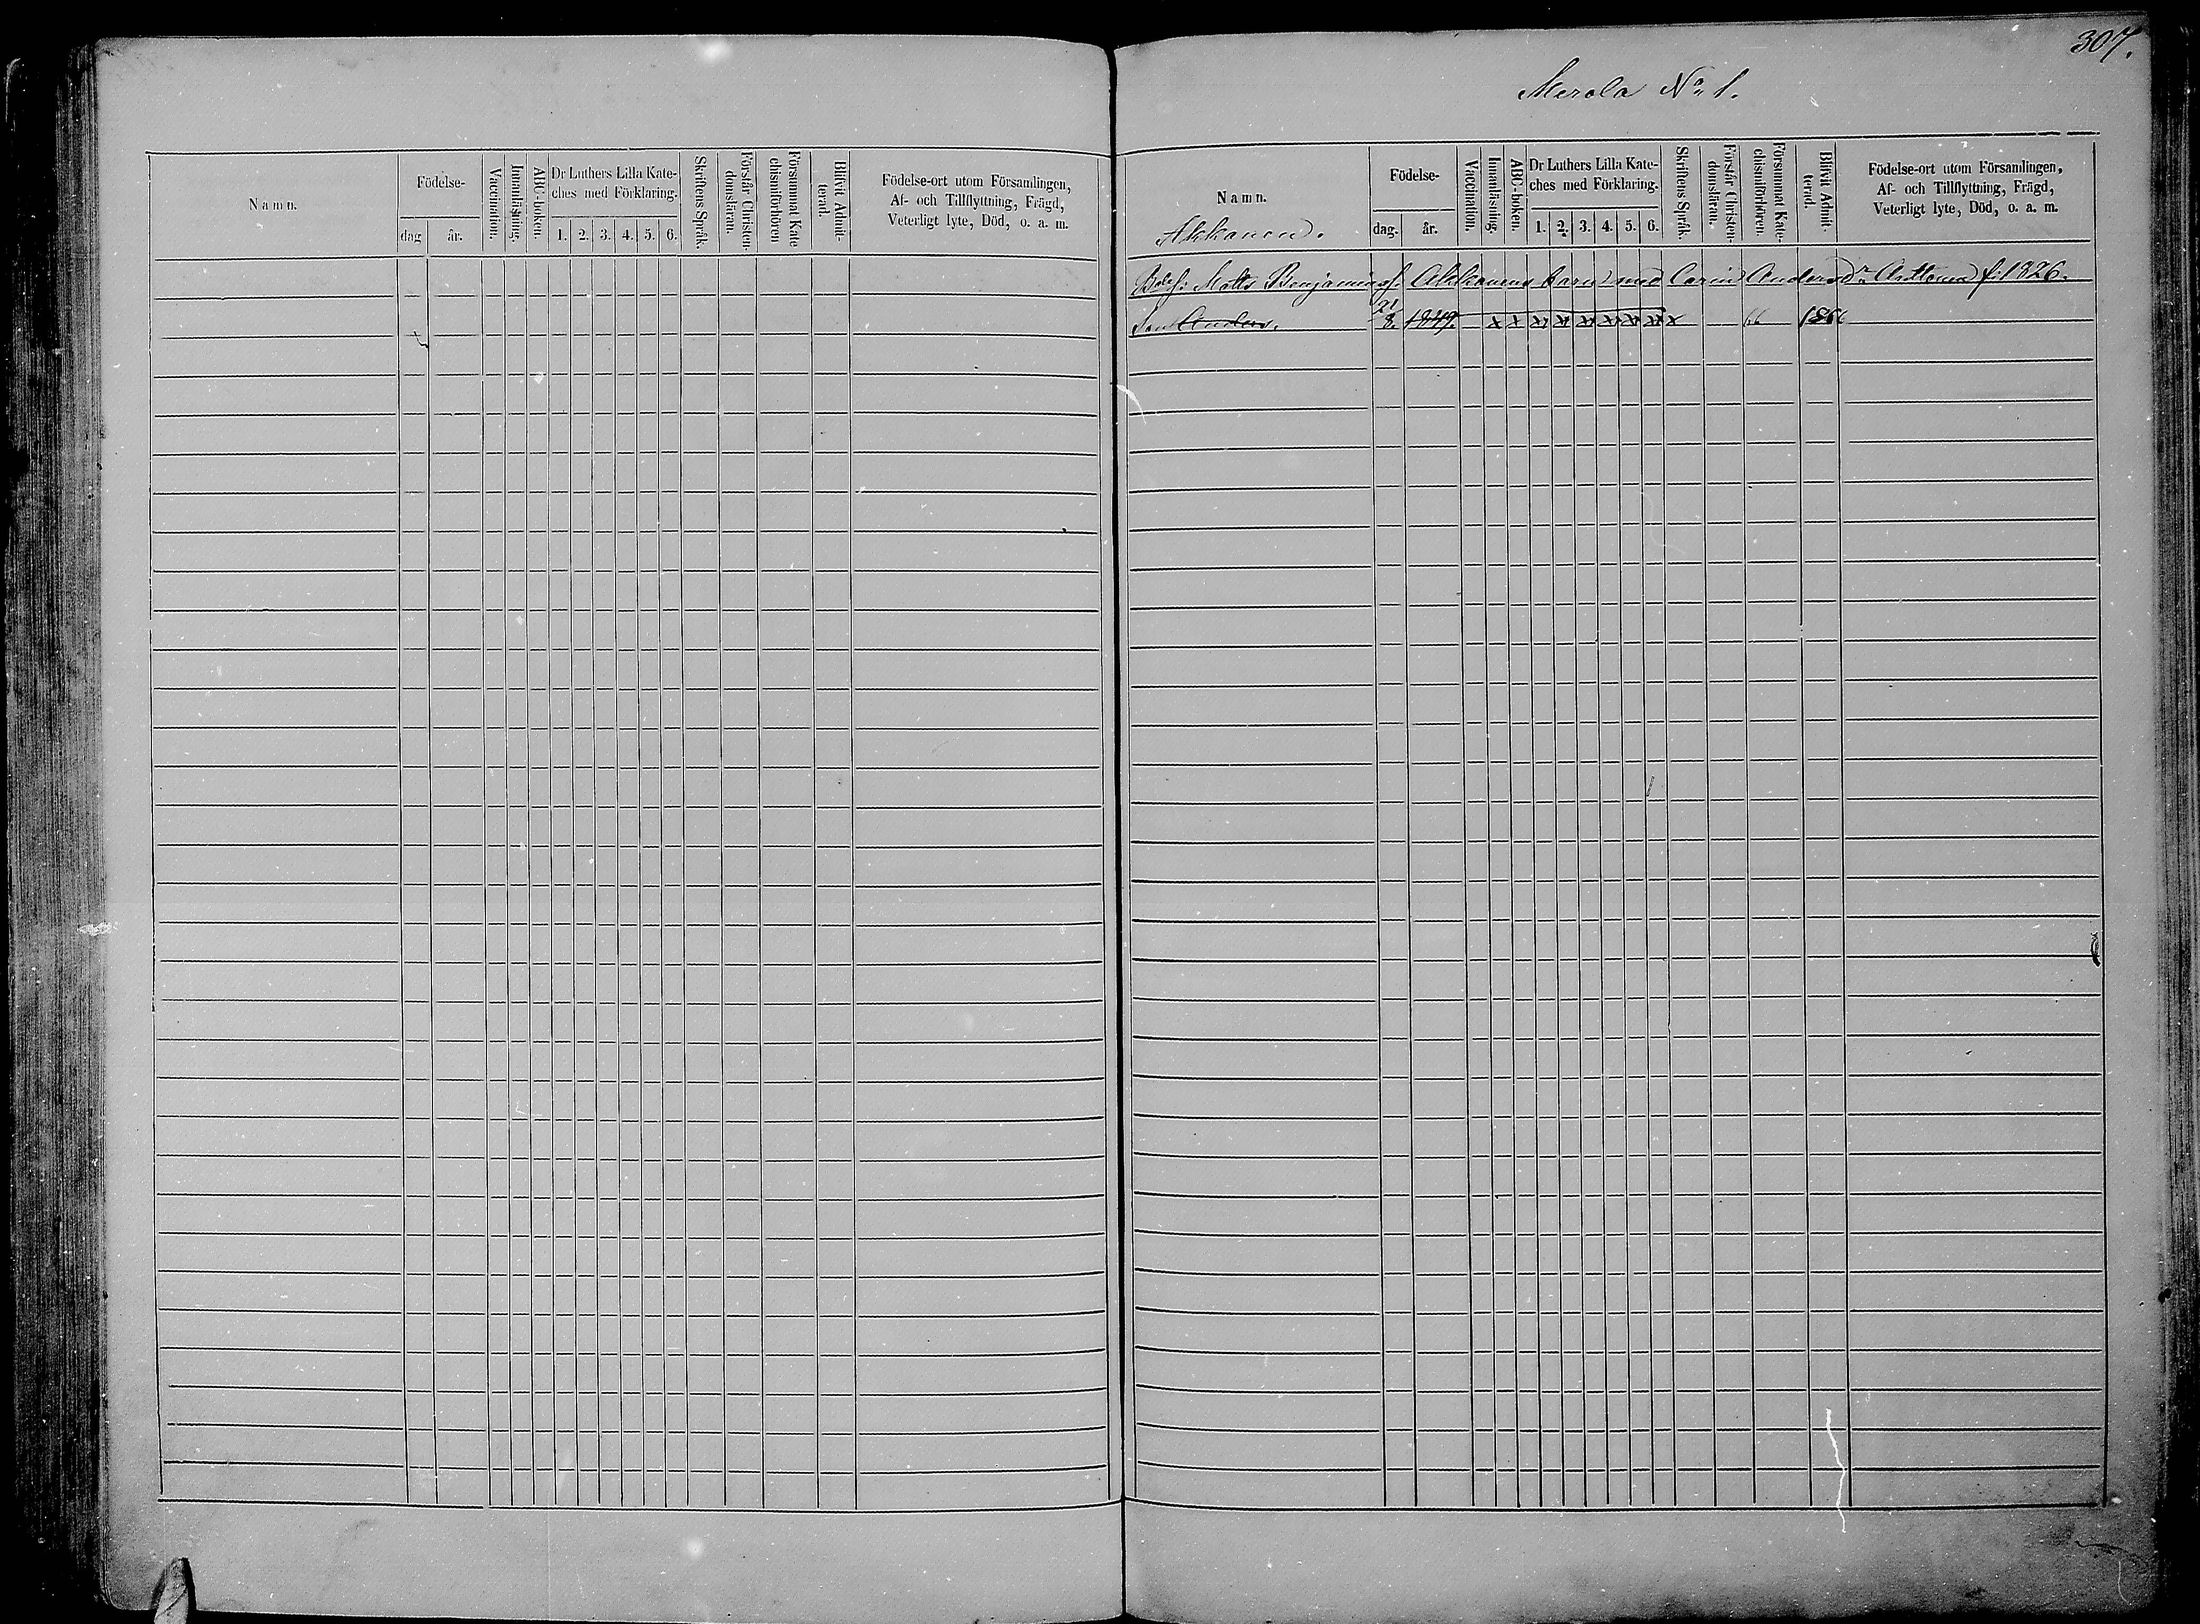 307.
Merola No 1.
Namn.
Födelse-
dag
år.
Vaccination.
Innanläsning.
ABC-boken.
Dr Luthers Lilla Kate-
ches med Förklaring.
1. 2. 3. 4. 5. 6.
Skriftens Språk.
Förstår Christen-
domsläran.
Försummat Kate
chismiförhören
Blivit Admit-
terad.
Födelse-ort utom Församlingen,
Af- och Tillflyttning, Frägd,
Veterligt lyte, Död, o. a. m.
Namn.
Akkanen.
Födelse-
dag.
år.
Vaccination.
Innanläsning.
ABC-boken.
Dr Luthers Lilla Kate-
ches med Förklaring.
1. 2. 3. 4. 5. 6.
Skriftens Språk.
Förstår Christen-
domsläran.
Försummat Kate-
chismiförhören.
Blivit Admit-
terad.
Födelse-ort utom Församlingen,
Af- och Tillflyttning, Frägd,
Veterligt lyte, Död, o. a. m.
Matts Benjaminss. Akkanens barn med Carin Andersdr f. 1826.
Son Anders. 8. 1849. x x x x x x x x x 66 1866